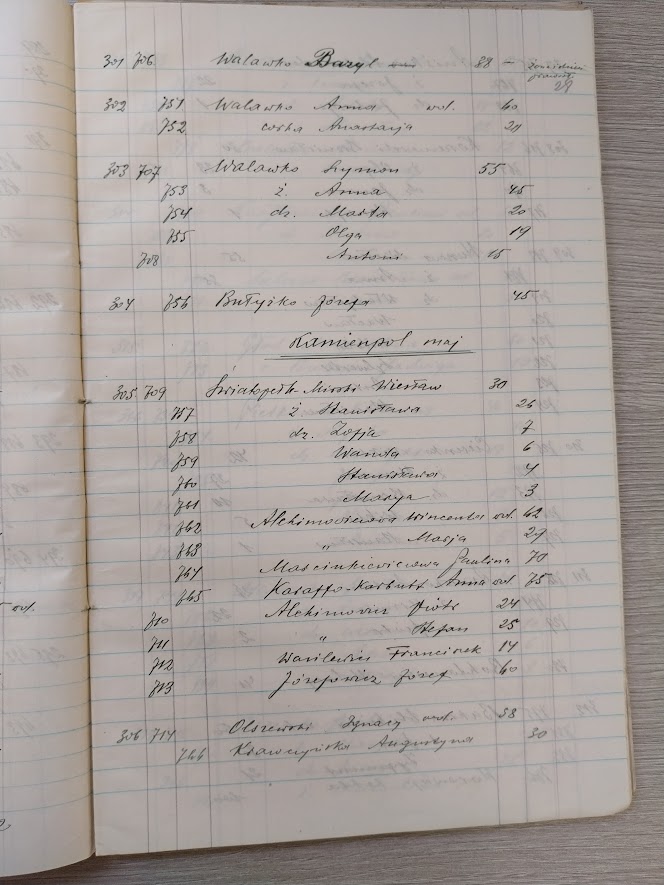 301 706 Walawko Bazyl 38 –
28
302 751 Walawko Anna wd. 60
752 corka Anastazja 24
303 707 Walawko Szymon 55
753 ż. Anna 45
754 dz. Marta 20
755 Olga 19
708 Antoni 15
304 756 Butyżko Józefa 45
Kamienpol maj.
305 709 Światopełk-Mirski Wiesław 30
757 ż. Stanisława 26
758 dz. Zofja 7
759 Wanda 6
760 Stanisława 4
761 Marya 3
762 Alchimowiczowa Wincenta wd. 62
763 „ Marja 29
764 Marcinkiewiczowa Paulina 70
765 Karaffo-Korbutt Anna wd. 75
710 Alchimowicz Piotr 24
711 „ Stefan 25
712 Wasilewicz Franciszek 14
713 Józefowicz Józef 60
306 714 Olszewski Ignacy wd. 38
766 Krawczyńska Augustyna 30